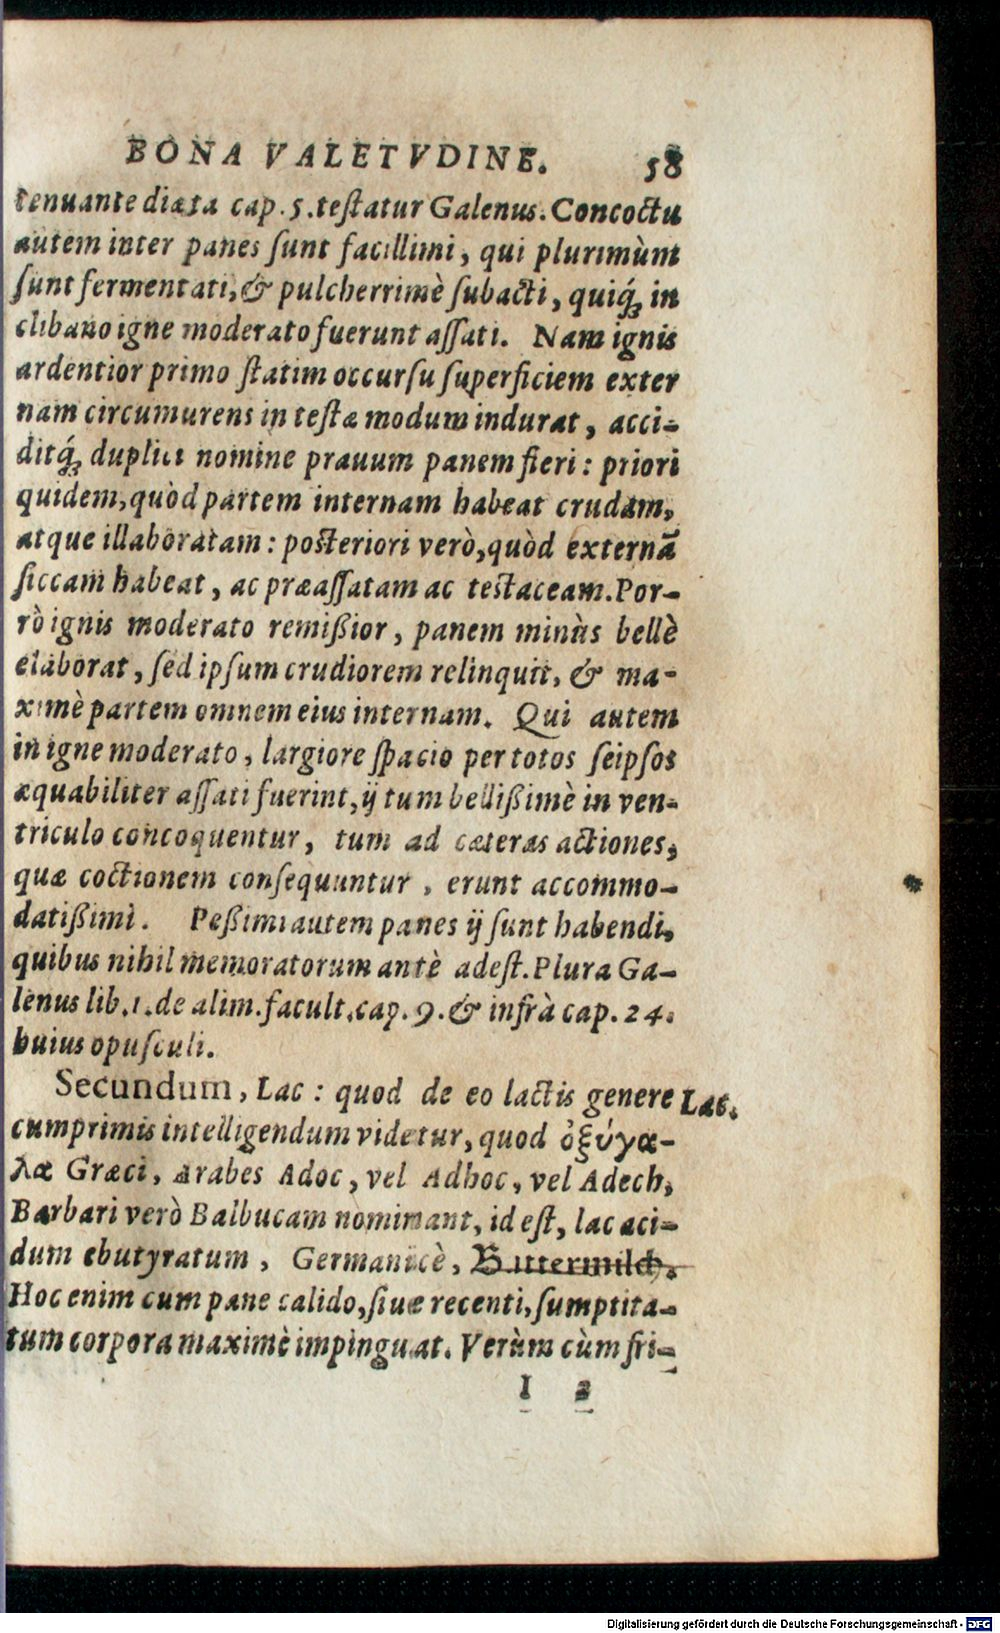 BONA VALETVDINE. 58
tenuante diæta cap. 5. teſtatur Galenus. Concoctu
autem inter panes ſunt facillimi, qui plurimùm
ſunt fermentati, & pulcherrimè ſubacti, quiq́ꝫ in
clibano igne moderato fuerunt aſſati. Nam ignis
ardentior primo ſtatim occurſu ſuperficiem exter
nam circumurens in teſtæ modum indurat, acci-
ditq́ꝫ duplici nomine prauum panem fieri: priori
quidem, quòd partem internam habeat crudam,
atque illaboratam: poſteriori verò, quòd externã
ſiccam habeat, ac præaſſatam ac teſtaceam. Por-
rò ignis moderato remißior, panem minùs bellè
elaborat, ſed ipſum crudiorem relinquit, & ma-
ximè partem omnem eius internam. Qui autem
in igne moderato, largiore ſpacio per totos ſeipſos
æquabiliter aſſati fuerint, ij tum bellißimè in ven-
triculo concoquentur, tum ad cæteras actiones,
quæ coctionem conſequuntur, erunt accommo-
datißimi. Peßimi autem panes ij ſunt habendi,
quibus nihil memoratorum antè adeſt. Plura Ga-
lenus lib. 1. de alim. facult. cap. 9. & infrà cap. 24.
huius opuſculi.
Secundum, Lac: quod de eo lactis genere Lac.
cumprimis intelligendum videtur, quod ὀξύγα-
λα Græci, Arabes Adoc, vel Adhoc, vel Adech,
Barbari verò Balbucam nominant, id eſt, lac aci-
dum ebutyratum, Germanicè, Buttermilch.
Hoc enim cum pane calido, ſiue recenti, ſumptita-
tum corpora maximè impinguat. Verùm cùm fri-
I 2
Digitalisierung gefördert durch die Deutsche Forschungsgemeinschaft - DFG